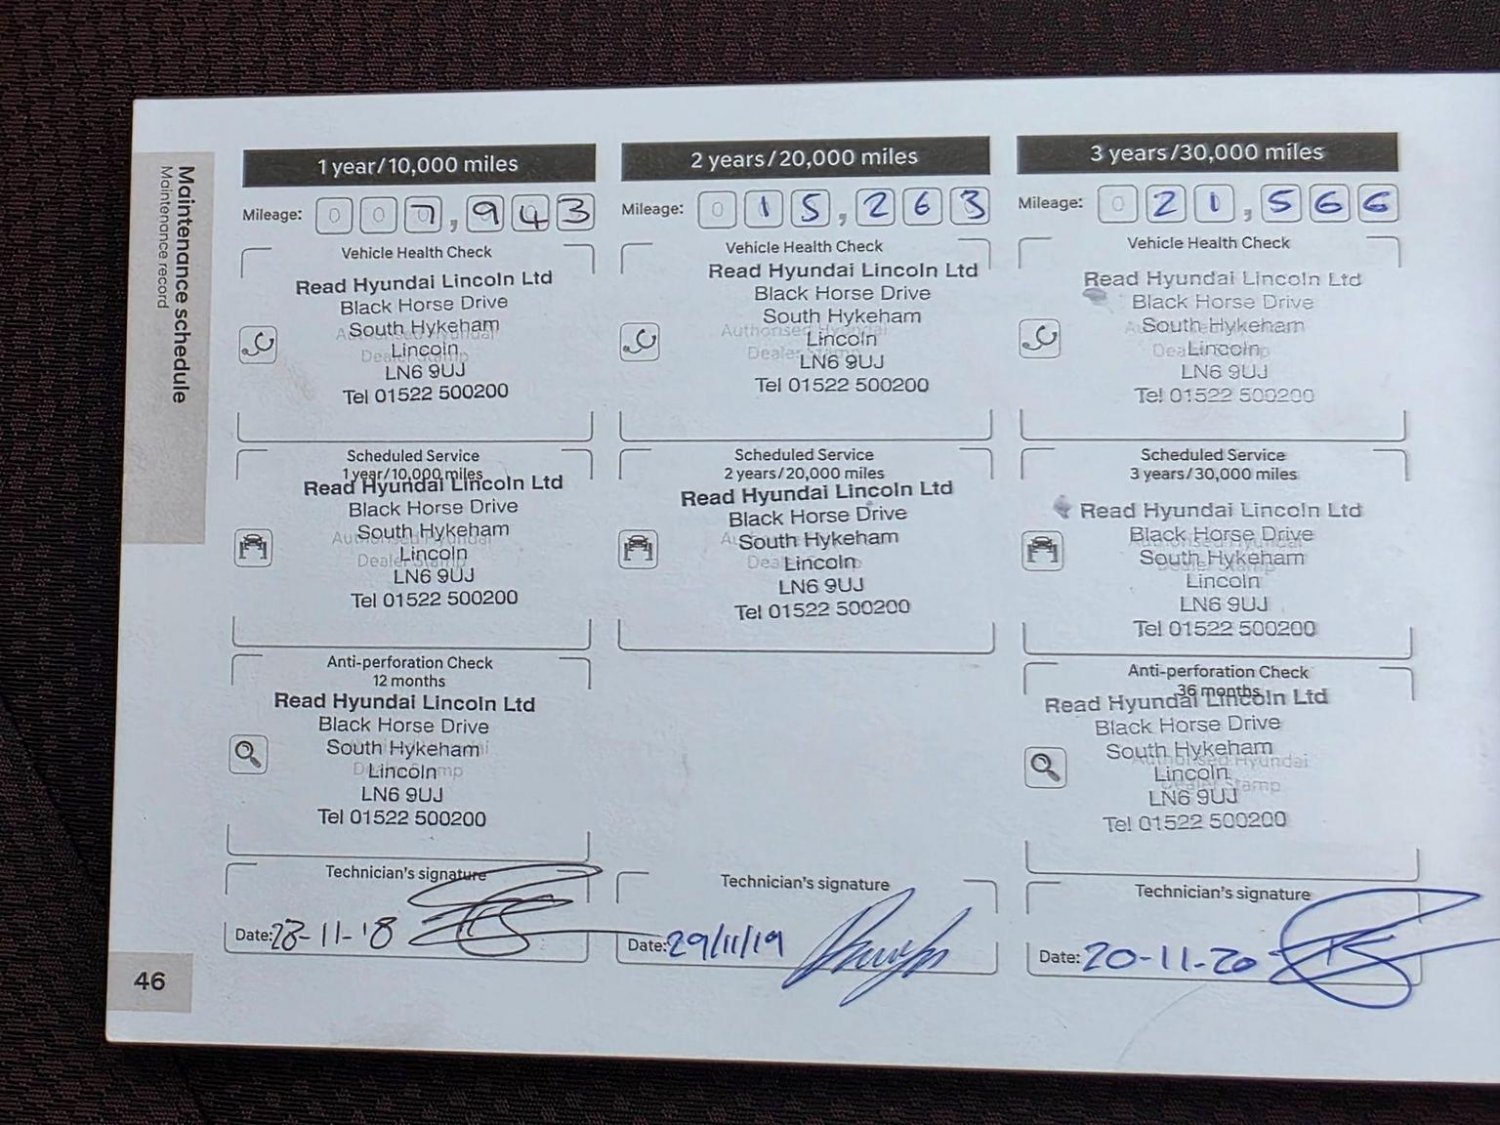 Maintenance schedule
Maintenance record
1 year/10,000 miles
Mileage: 007,943
Vehicle Health Check
Read Hyundai Lincoln Ltd
Black Horse Drive
South Hykeham
Authorised Hyundai
Lincoln
Dealer Stamp
LN6 9UJ
Tel 01522 500200
Scheduled Service
1 year/10,000 miles
Read Hyundai Lincoln Ltd
Black Horse Drive
South Hykeham
Authorised Hyundai
Lincoln
Dealer Stamp
LN6 9UJ
Tel 01522 500200
Anti-perforation Check
12 months
Read Hyundai Lincoln Ltd
Black Horse Drive
South Hykeham
Lincoln
LN6 9UJ
Tel 01522 500200
Technician's signature
Date: 28-11-18
2 years/20,000 miles
Mileage: 015,263
Vehicle Health Check
Read Hyundai Lincoln Ltd
Black Horse Drive
South Hykeham
Authorised Hyundai
Lincoln
Dealer Stamp
LN6 9UJ
Tel 01522 500200
Scheduled Service
2 years/20,000 miles
Read Hyundai Lincoln Ltd
Black Horse Drive
South Hykeham
Lincoln
LN6 9UJ
Tel 01522 500200
Technician's signature
Date: 29/11/19
3 years/30,000 miles
Mileage: 021,566
Vehicle Health Check
Read Hyundai Lincoln Ltd
Black Horse Drive
South Hykeham
Lincoln
LN6 9UJ
Tel 01522 500200
Scheduled Service
3 years/30,000 miles
Read Hyundai Lincoln Ltd
Black Horse Drive
South Hykeham
Lincoln
LN6 9UJ
Tel 01522 500200
Anti-perforation Check
36 months
Read Hyundai Lincoln Ltd
Black Horse Drive
South Hykeham
Authorised Hyundai
Lincoln
Dealer Stamp
LN6 9UJ
Tel 01522 500200
Technician's signature
Date: 20-11-20
46